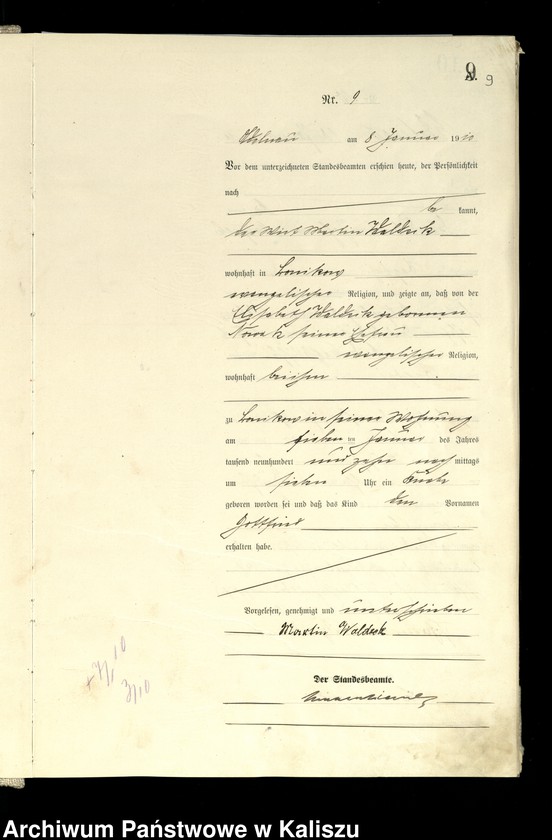 9
9
Nr. 9
Adelnau am 8 Januar 1910
Vor dem unterzeichneten Standesbeamten erschien heute, der Persönlichkeit
nach
be kannt,
der Wirt Martin Waldeck
wohnhaft in
evangelischer Religion, und zeigte an, daß von der
Elisabeth Waldeck geborenen
Nowak seiner Ehefrau
evangelischer Religion,
wohnhaft bei ihm
zu in seiner Wohnung
am sieben ten Januar des Jahres
tausend neunhundert und zehn nach mittags
um sieben Uhr ein Knabe
geboren worden sei und daß das Kind den Vornamen
Gottfried
erhalten habe.
Vorgelesen, genehmigt und unterschrieben
Martin Waldeck
Der Standesbeamte.
Archiwum Państwowe w Kaliszu